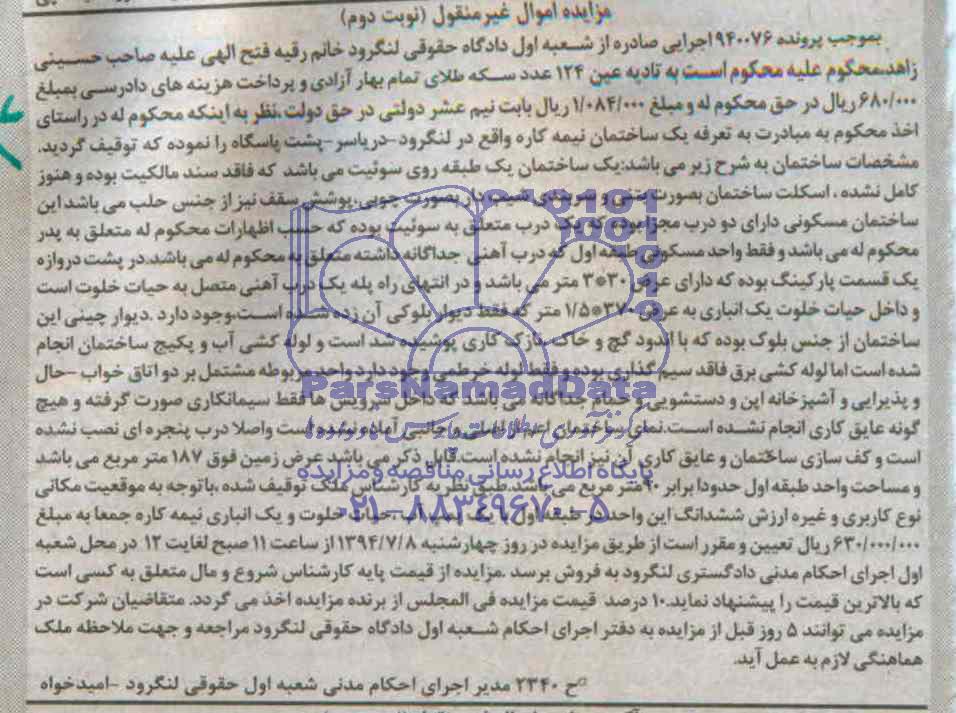 مزایده اموال غیرمنقول (نوبت دوم)
بموجب پرونده ۹۴۰۰۷۶ اجرایی صادره از شعبه اول دادگاه حقوقی لنگرود خانم رقیه فتح الهی علیه صاحب حسینی
زاهد،محکوم علیه محکوم است به تادیه عین ۱۲۴ عدد سکه طلای تمام بهار آزادی و پرداخت هزینه های دادرسی بمبلغ
۶۸۰/۰۰۰ ریال در حق محکوم له و مبلغ ۱/۰۸۴/۰۰۰ ریال بابت نیم عشر دولتی در حق دولت،نظر به اینکه محکوم له در راستای
اخذ محکوم به مبادرت به تعرفه یک ساختمان نیمه کاره واقع در لنگرود-دریاسر-پشت پاسگاه را نموده که توقیف گردید.
مشخصات ساختمان به شرح زیر می باشد:یک ساختمان یک طبقه روی سوئیت می باشد که فاقد سند مالکیت بوده و هنوز
کامل نشده ، اسکلت ساختمان بصورت بتنی و شیب دار بصورت چوبی،پوشش سقف نیز از جنس حلب می باشد این
ساختمان مسکونی دارای دو درب مجزا بوده که یک درب متعلق به سوئیت بوده که حسب اظهارات محکوم له متعلق به پدر
محکوم له می باشد و فقط واحد مسکونی طبقه اول که درب آهنی جداگانه داشته متعلق به محکوم له می باشد.در پشت دروازه
یک قسمت پارکینگ بوده که دارای عرض ۳۰*۳ متر می باشد و در انتهای راه پله یک درب آهنی متصل به حیات خلوت است
و داخل حیات خلوت یک انباری به عرض ۳۷۰*۱/۵ متر که فقط دیوار بلوکی آن زده شده است،وجود دارد .دیوار چینی این
ساختمان از جنس بلوک بوده که با اندود گچ و خاک نازک کاری پوشیده شد است و لوله کشی آب و پکیج ساختمان انجام
شده است اما لوله کشی برق فاقد سیم گذاری بوده و فقط لوله خرطمی وجود دارد واحد مربوطه مشتمل بر دو اتاق خواب -حال
و پذیرایی و آشپزخانه اپن و دستشویی و حمام جداگانه می باشد که داخل سرویس ها فقط سیمانکاری صورت گرفته و هیچ
گونه عایق کاری انجام نشده است.نمای ساختمان اعم از اصلی و جانبی آماده نبوده است واصلا درب پنجره ای نصب نشده
است و کف سازی ساختمان و عایق کاری آن نیز انجام نشده است.قابل ذکر می باشد عرض زمین فوق ۱۸۷ متر مربع می باشد
و مساحت واحد طبقه اول حدودا برابر متر مربع می باشد.طبق نظر به کارشناس ملک توقیف شده ،با توجه به موقعیت مکانی
نوع کاربری و غیره ارزش ششدانگ این واحد طبقه اول با یک حیات خلوت و یک انباری نیمه کاره جمعا به مبلغ
۶۳۰/۰۰۰/۰۰۰ ریال تعیین و مقرر است از طریق مزایده در روز چهارشنبه ۱۳۹۴/۷/۸ از ساعت ۱۱ صبح لغایت ۱۲ در محل شعبه
اول اجرای احکام مدنی دادگستری لنگرود به فروش برسد .مزایده از قیمت پایه کارشناس شروع و مال متعلق به کسی است
که بالاترین قیمت را پیشنهاد نماید.۱۰ درصد قیمت مزایده فی المجلس از برنده مزایده اخذ می گردد. متقاضیان شرکت در
مزایده می توانند ۵ روز قبل از مزایده به دفتر اجرای احکام شعبه اول دادگاه حقوقی لنگرود مراجعه و جهت ملاحظه ملک
هماهنگی لازم به عمل آید.
ح ۲۳۴۰ مدیر اجرای احکام مدنی شعبه اول حقوقی لنگرود -امیدخواه
ParsNamadData
پایگاه اطلاع رسانی مناقصه و مزایده
۰۲۱-۸۸۳۴۹۶۷۰-۵